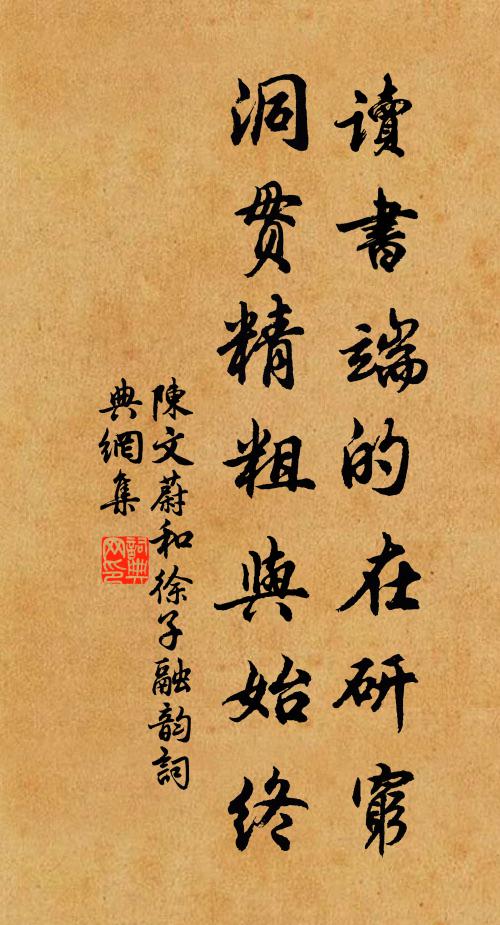 讀書端的在研窮
洞貫精粗與始終
陳文蔚和徐子融韵詞
典網集
詞典網印